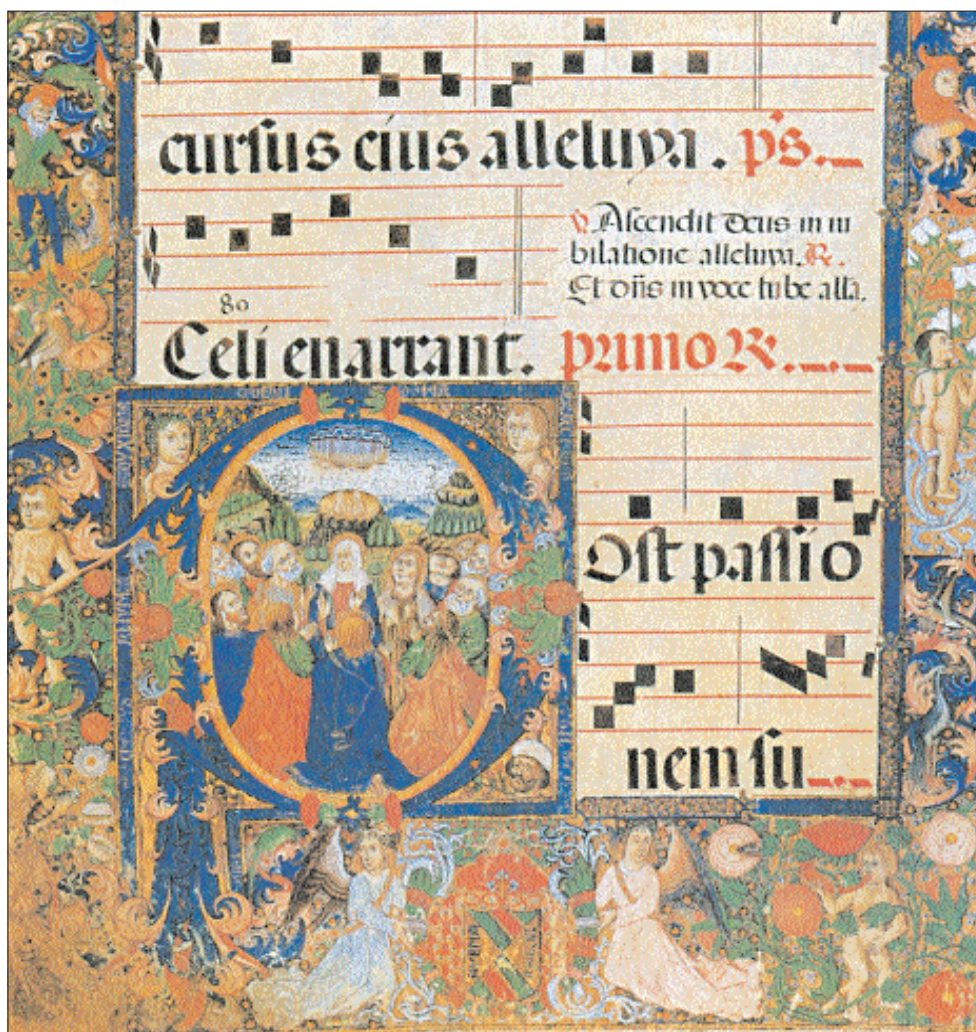 cursus eius alleluya. p̄s.
V Ascendit deus in iu
bilatione alleluya. R.
Et dñs in voce tube alla.
80
Celi enarrant. primo R.
Ost passio
nem su